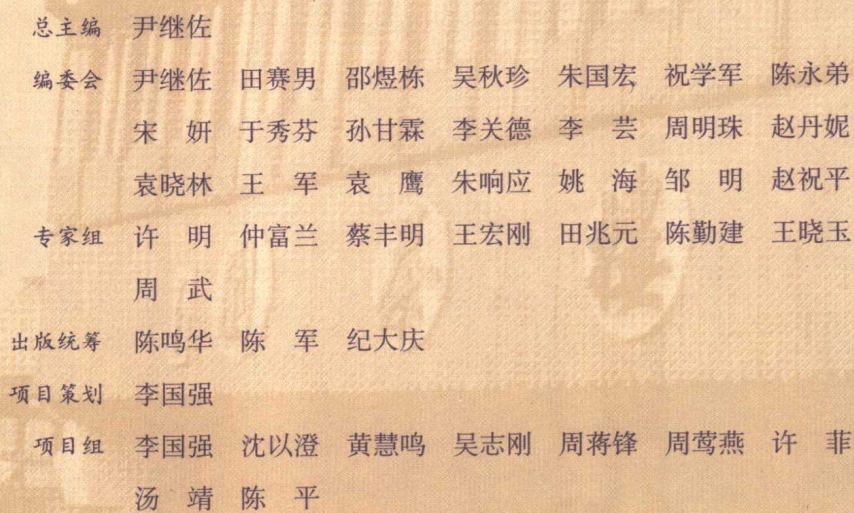 总主编 尹继佐
编委会 尹继佐 田赛男 邵煜栋 吴秋珍 朱国宏 祝学军 陈永弟
宋 妍 于秀芬 孙甘霖 李关德 李 芸 周明珠 赵丹妮
袁晓林 王 军 袁 鹰 朱响应 姚 海 邹 明 赵祝平
专家组 许 明 仲富兰 蔡丰明 王宏刚 田兆元 陈勤建 王晓玉
周 武
出版统筹 陈鸣华 陈 军 纪大庆
项目策划 李国强
项目组 李国强 沈以澄 黄慧鸣 吴志刚 周蒋锋 周莺燕 许 菲
汤 靖 陈 平